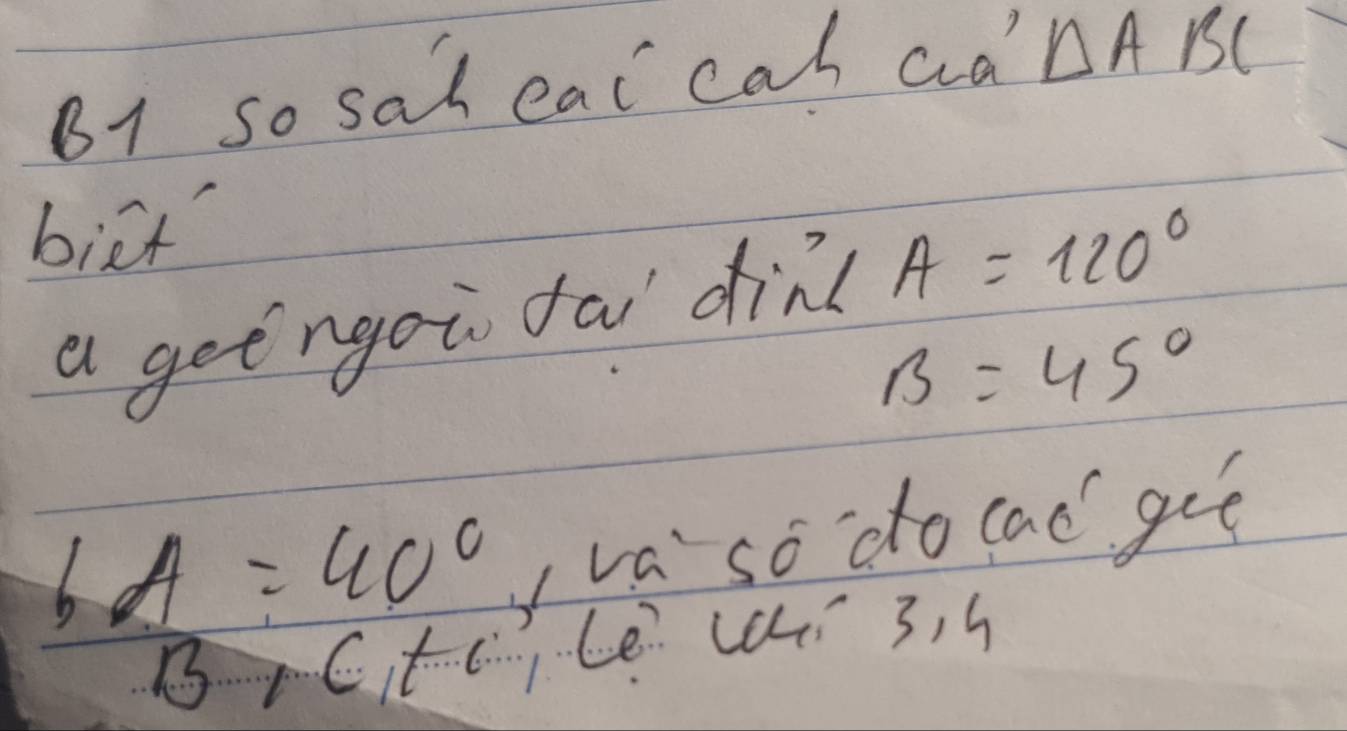 B1 so sáh các cạh củả ΔABC
biết
a góc ngoài tại đỉnh A = 120°
B = 45°
b A = 40°, và số đo các góc
B, C, tỉ, lệ với 3,4